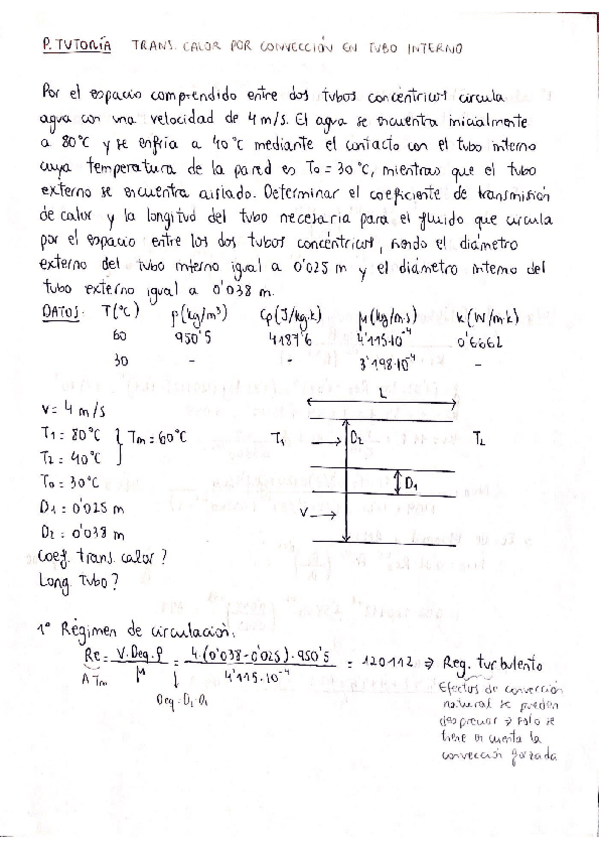 P. TUTORÍA TRANS. CALOR POR CONVECCIÓN EN TUBO INTERNO
Por el espacio comprendido entre dos tubos concéntricos circula
agua con una velocidad de 4 m/s. El agua se encuentra inicialmente
a 80°C y se enfría a 40°C mediante el contacto con el tubo interno
cuya temperatura de la pared es To = 30°C, mientras que el tubo
externo se encuentra aislado. Determinar el coeficiente de transmisión
de calor y la longitud del tubo necesaria para el fluido que circula
por el espacio entre los dos tubos concéntricos, siendo el diámetro
externo del tubo interno igual a 0'025 m y el diámetro interno del
tubo externo igual a 0'038 m.
DATOS: T(°C) ρ(kg/m³) Cp(J/kg.k) μ(kg/m.s) k(W/m.k)
60 950'5 4187'6 4'115.10⁻⁴ 0'6662
30 - - 3'198.10⁻⁴ -
V= 4 m/s
T1 = 80°C } Tm = 60°C
T2 = 40°C
To = 30°C
D1 = 0'025 m
D2 = 0'038 m
Coef. trans. calor?
Long. Tubo?
L
T1 D2 T2
D1
V
1° Régimen de circulación.
Re = V.Deq.ρ / μ = 4.(0'038-0'025).950'5 / 4'115.10⁻⁴ = 120112 ⇒ Reg. turbulento
A Tm
Deq = D2-D1
Efectos de convección
natural se pueden
despreciar → solo se
tiene en cuenta la
convección forzada